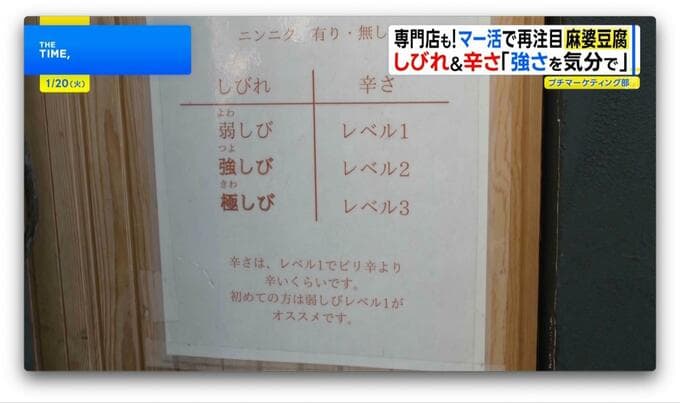 THE
TIME,
1/20(火)
専門店も!マー活で再注目 麻婆豆腐
しびれ&辛さ「強さを気分で」
プチマーケティング部
ニンニク 有り・無し
しびれ
辛さ
よわ
弱しび
レベル1
つよ
強しび
レベル2
きわ
極しび
レベル3
辛さは、レベル1でピリ辛より
辛いくらいです。
初めての方は弱しびレベル1が
オススメです。